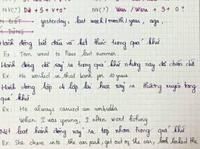 N/(?) Did + S + V + O? N/(?) Was / Were + S + O ?
yesterday, last week / month / year, ago.
Hành động bắt đầu và kết thúc trong quá khứ
Ex: Tom went to Paris last summer.
Hành động đã xảy ra trong quá khứ nhưng nay đã chấm dứt
Ex: He worked in that bank for 4 years
Hành động lặp đi lặp lại hay xảy ra thường xuyên trong
quá khứ
Ex: He always carried an umbrella
When I was young, I often went fishing
loạt hành động xảy ra tiếp nhau trong quá khứ
Ex: She drove into the car park, got out of the car, locked the